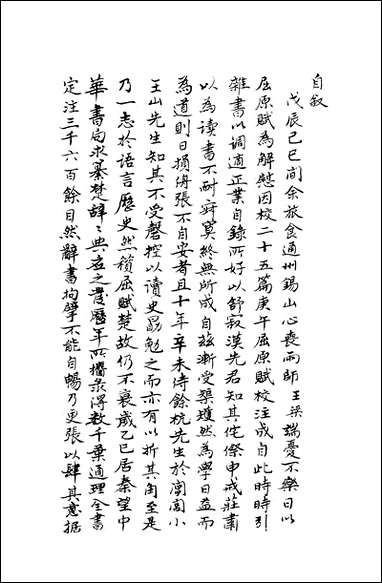 自叙
戊辰己巳间余旅食通州锡山心丧两师王梁端憂不樂日以
屈原賦為解慰因校二十五篇庚午屈原賦校注成自此時時引
雜書以調適正業自錄所好以舒寂漠先君知其侘傺申戒莊肅
以為读書不耐寂莫終無所成自兹漸受榘矱然為學日益而
為道則日損侜張不自安者且十年辛未侍餘杭先生於同孚小
王山先生知其不受磬控以讀史勗勉之而亦有以折其角至是
乃一志於語言歷史然積屈賦楚故仍不衰歲乙巳居秦望中
華書局求纂楚辭辭典名之發歷年所攟彔得数千葉通理全書
定注三千六百餘目然辭書拘攣不能自暢乃更張以肆其意据